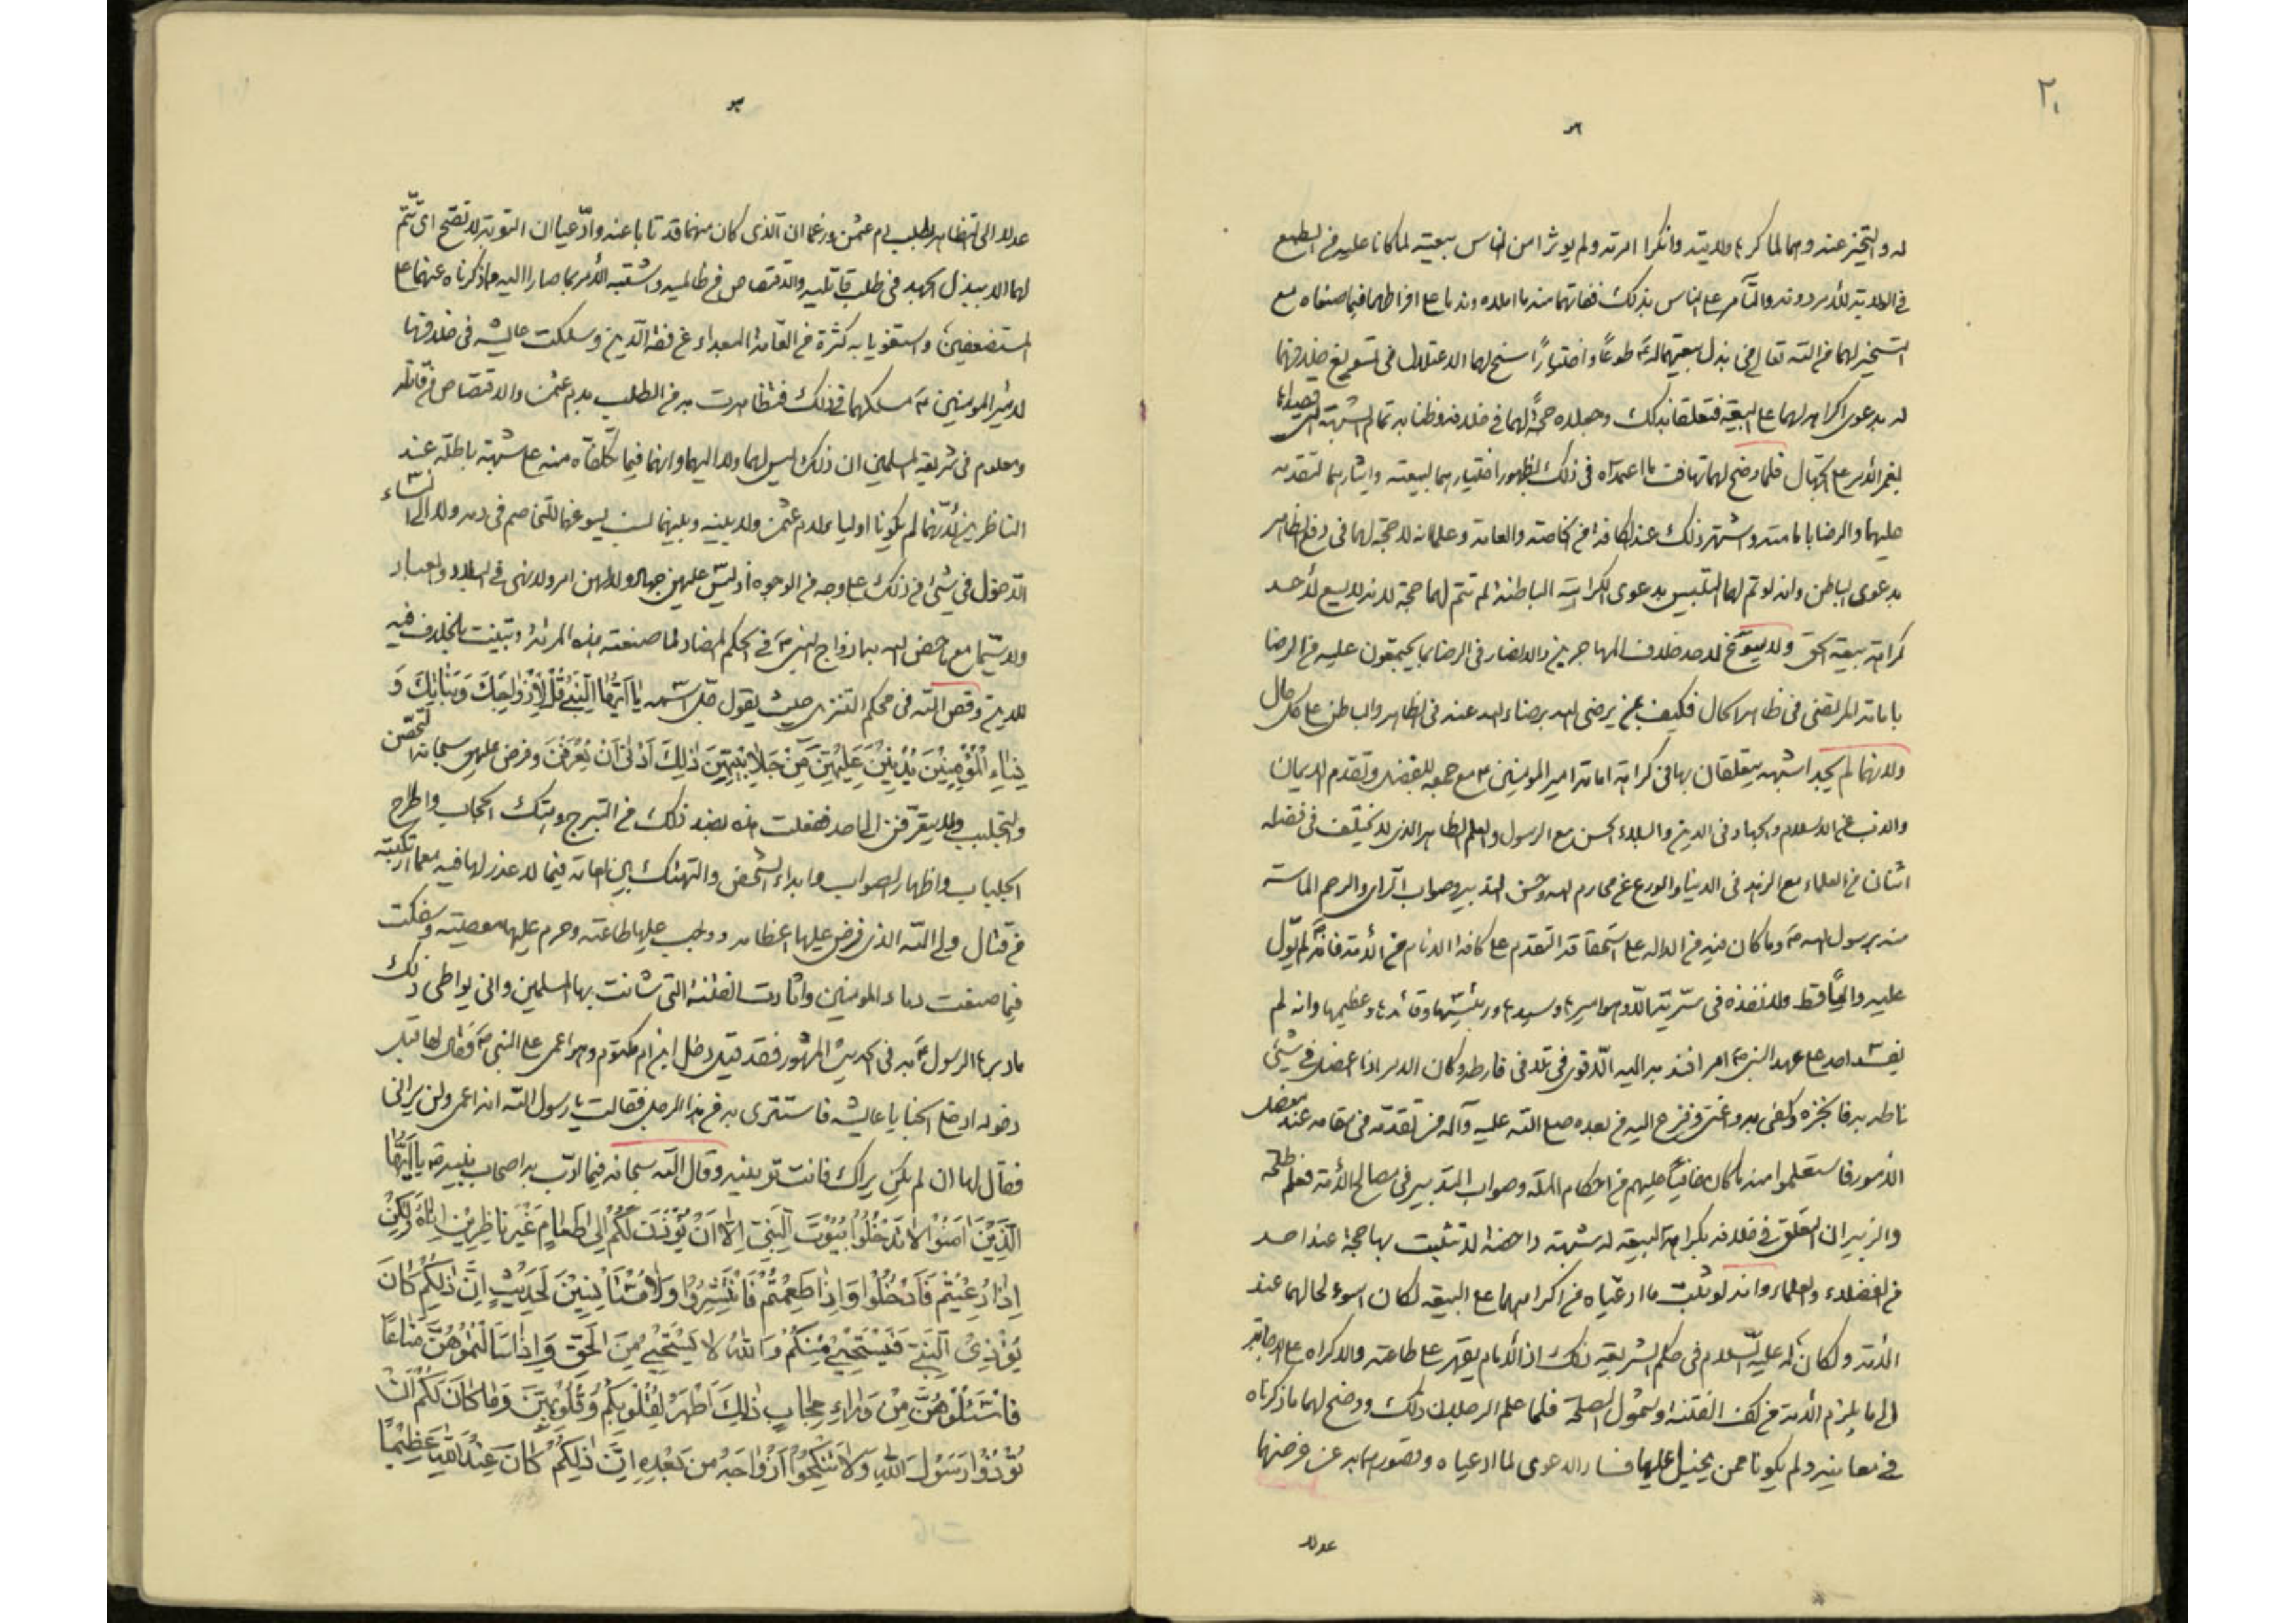 ٢٠
له والتحيز عنه وهما لما كرها ولايته وانكرا امرته ولم يؤثرا من الناس بيعته لما كانا عليه من الطمع
في الولاية للأمر دونه والتأمر على الناس بذلك ففاتهما منه ما املاه وندما على افراطهما فيما صنعاه مع
التسخير لهما من الله تعالى في بذل بيعتهما له طوعًا واختيارًا سنح لهما الاعتلال في تسويغ خلافهما
له بدعوى اكراهه لهما على البيعة فتعلقا بذلك وجعلاه حجةً لهما في خلافه وظنا به تمام الشبهة التي قصداها
لغمر الأمر على الجهال فلما وضح لهما تهافت ما اعتمداه في ذلك لظهور اختيارهما لبيعته وايثارهما لتقدمه
عليهما والرضا بامامته واشتهر ذلك عند الكافة من الخاصة والعامة وعلما انه لا حجة لهما في دفع الظاهر
بدعوى الباطن وانه لو تم لهما التلبيس بدعوى الكراهية الباطنة لم تتم لهما حجة لانه لا يسع لأحد
كراهة بيعة الحق ولا يسوغ لاحد خلاف المهاجرين والانصار في الرضا بما يجتمعون عليه من الرضا
بامامة المرتضى في ظاهر الحال فكيف بمن يرضى الله برضاء الله عنه في الظاهر والباطن على كل حال
ولانهما لم يجدا شبهة يتعلقان بها في كراهة امامة امير المؤمنين ع مع جمعه للفضل وتقدم الايمان
والذب عن الاسلام والجهاد في الدين والبلاء الحسن مع الرسول والعلم الظاهر الذي لا يختلف في فضله
اثنان من العلماء مع الزهد في الدنيا والورع عن محارم الله وحسن التدبير وصواب الرأي والرحم الماسة
منه برسول الله ص وما كان منه من الدلالة على استحقاقه التقدم على كافة الانام من الأمة فانه لم يولّ
عليه واليًا قط ولا نفذه في سرية الا وهو اميرها وسيدها ورئيسها وقائدها وعظيمها وانه لم
الامور فاستعلموا منه ما كان خافيًا عليهم من احكام الملة وصواب التدبير في مصالح الأمة فعلم طلحة
والزبير ان التعلق في خلافه بكراهة البيعة له شبهة داحضة لا تثبت بها حجة عند احد
من الفضلاء والعلماء وانه لو ثبت ما ادعياه من اكراههما على البيعة لكان اسوء لحالهما عند
الأمة ولكان له عليه السلام في حكم الشريعة ذلك اذ للامام يقهر على طاعته والاكراه على الاجابة
الى ما يلزم الأمة من كف الفتنة وشمول المصلحة فلما علم الرجلان ذلك ووضح لهما ما ذكرناه
في معانيه ولم يكونا ممن يخيل عليهما فساد الدعوى لما ادعياه وقصورهما به عن غرضهما
عدلا
عدلا الى التظاهر بطلب دم عثمن وزعما ان الذي كان منهما قد تابا عنه وادّعيا ان التوبة لا تصح اى تتم
لهما الا ببذل الجهد في طلب قاتليه والاقتصاص من ظالميه واشتبه الأمر بما صارا اليه وما ذكرناه عنهما على
المستضعفين واستغويا به كثرة من العامة البعداء عن فقه الدين وسلكت عايشة في خلافها
لامير المؤمنين ع مسلكهما في ذلك فتظاهرت به من الطلب بدم عثمن والاقتصاص من قاتله
ومعلوم في شريعة المسلمين ان ذلك ليس لهما ولا اليهما وانهما فيما تكلفاه منه على شبهة باطلة عند
الناظرين لأنهما لم يكونا اولياء لدم عثمن ولا بينه وبينهما نسب يسوغهما التخاصم في دمه ولا الى النساء
الدخول في شيئ من ذلك على وجه من الوجوه اذ ليس عليهن جهاد ولا لهن امر ولا نهى في البلاد والعباد
ولا سيما مع ما خص الله بها ازواج النبي ص في الحكم المضاد لما صنعته هذه المرئة وتبينت بالخلاف فيه
للدين وقص الله في محكم التنزيل حيث يقول جل اسمه يَا اَيُّهَا النَّبِيُّ قُلْ لِاَزْوَاجِكَ وَبَنَاتِكَ وَ
نِسَاءِ الْمُؤْمِنِينَ يُدْنِينَ عَلَيْهِنَّ مِنْ جَلَابِيبِهِنَّ ذَلِكَ اَدْنَى اَنْ يُعْرَفْنَ وفرض عليهن سبحانه التحصن
والتجلبب ولا يتعرفن الى احد ففعلت هذه بضد ذلك من التبرج وهتك الحجاب واطراح
الجلباب واظهار الصواب وابداء الشخص والتهتك بين العامة فيما لا عذر لها فيه معما ارتكبته
من قتال ولي الله الذي فرض عليها اعظامه ووجب عليها طاعته وحرم عليها معصيته وسفكت
فيما صنعت دماء المؤمنين واثارت الفتنة التي شانت بها المسلمين وانى يواطى ذلك
ما دبرها الرسول ع به في الحديث المشهور فقد قيل دخل ابن ام مكتوم وهو اعمى على النبي ص فقال لها قبل
دخوله ادخلى الخبا يا عايشة فاستترى به من هذا الرجل فقالت يا رسول الله انه اعمى ولن يرانى
فقال لها ان لم يكن يراك فانت تريه وقال الله سبحانه فيما ادّب به اصحاب نبيه ص يَا اَيُّهَا
الَّذِينَ اٰمَنُوا لَا تَدْخُلُوا بُيُوتَ النَّبِيِّ اِلَّا اَنْ يُؤْذَنَ لَكُمْ اِلَى طَعَامٍ غَيْرَ نَاظِرِينَ اِنَاهُ وَلَكِنْ
اِذَا دُعِيتُمْ فَادْخُلُوا وَاِذَا طَعِمْتُمْ فَانْتَشِرُوا وَلَا مُسْتَأْنِسِينَ لِحَدِيثٍ اِنَّ ذَلِكُمْ كَانَ
يُؤْذِى النَّبِيَّ فَيَسْتَحْيِى مِنْكُمْ وَاللّٰهُ لَا يَسْتَحْيِى مِنَ الْحَقِّ وَاِذَا سَاَلْتُمُوهُنَّ مَتَاعًا
فَاسْئَلُوهُنَّ مِنْ وَرَاءِ حِجَابٍ ذَلِكَ اَطْهَرُ لِقُلُوبِكُمْ وَقُلُوبِهِنَّ وَمَا كَانَ لَكُمْ اَنْ
تُؤْذُوا رَسُولَ اللّٰهِ وَلَا تَنْكِحُوا اَزْوَاجَهُ مِنْ بَعْدِهِ اِنَّ ذَلِكُمْ كَانَ عِنْدَ اللّٰهِ عَظِيمًا